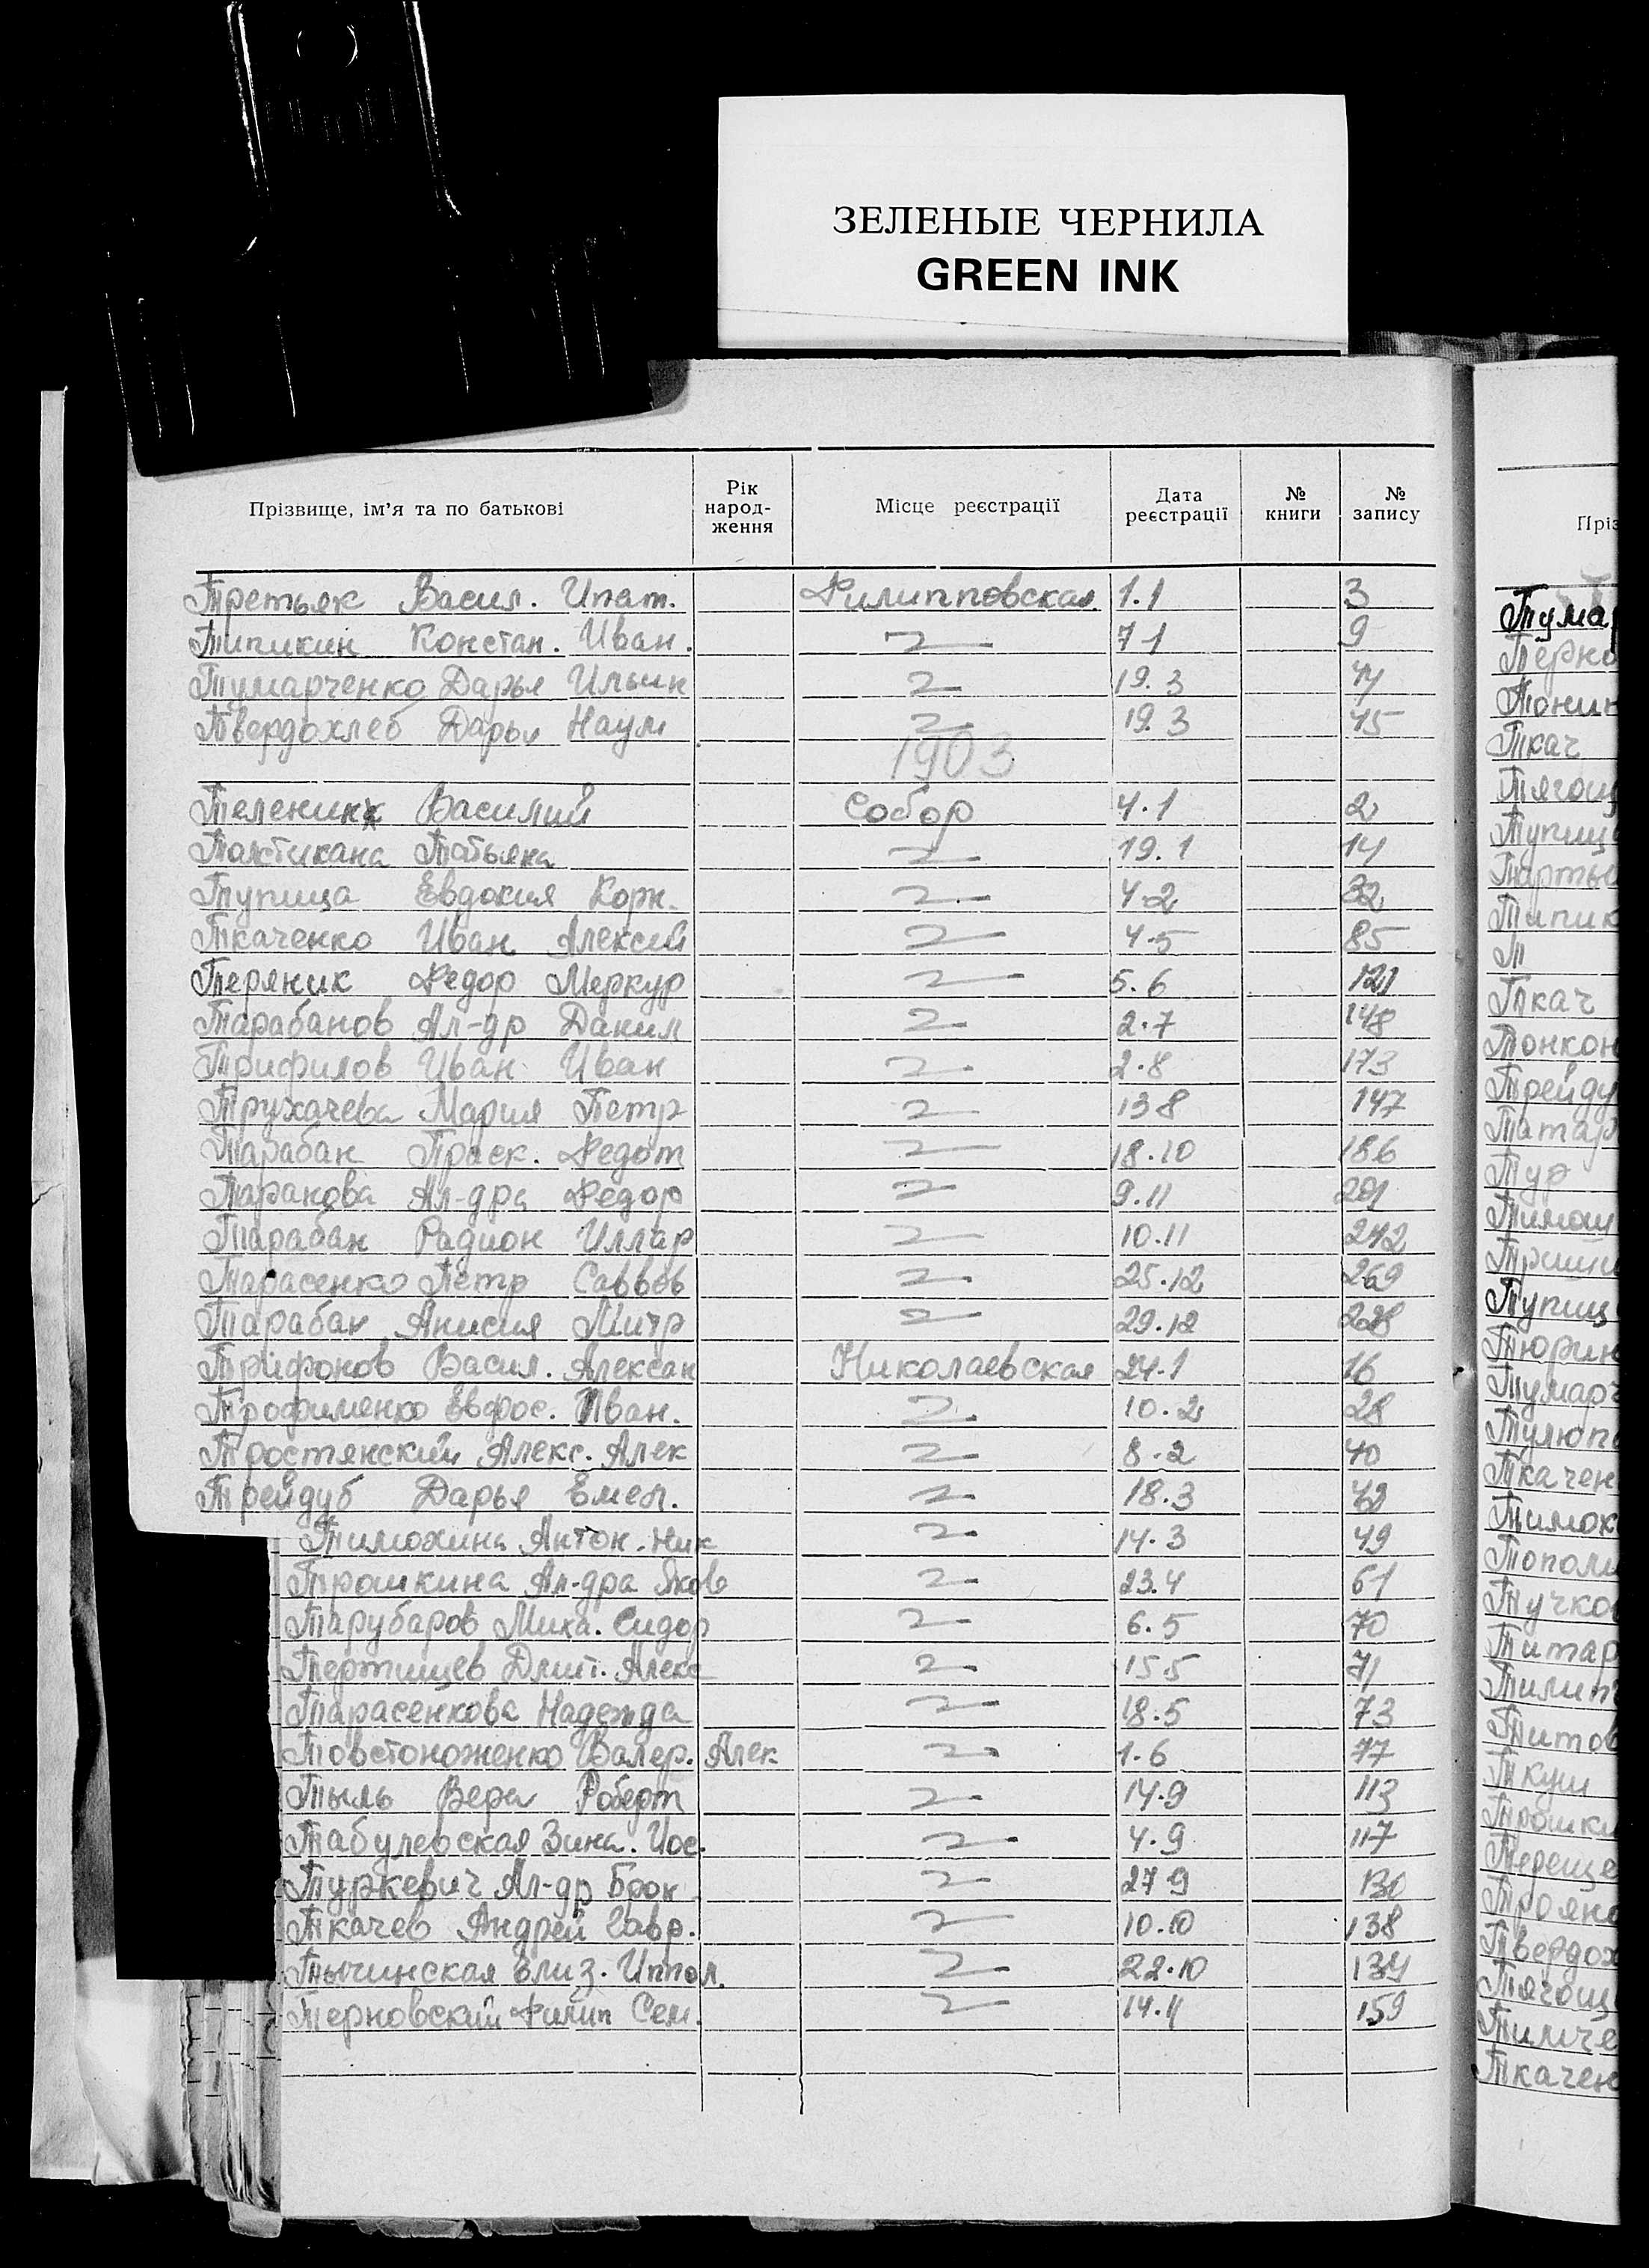 ЗЕЛЕНЫЕ ЧЕРНИЛА
GREEN INK
Прізвище, ім'я та по батькові Рік народ-ження Місце реєстрації Дата реєстрації № книги № запису
Третьяк Васил. Ипат. Филипповская 1.1 3
Типикин Констан. Иван. 7 1 9
Тумарченко Дарья Ильин 19.3
Твердохлеб Дарья Наум 19.3 45
1903
Василий Собор 4.1 2
Татьяна 19.1 14
Тупица Евдокия Корн. 4.2 32
Ткаченко Иван Алексей 4.5 85
Теряник Федор Меркур 5.6 121
Тарабанов Ал-др Данил 2.7 148
Трифилов Иван Иван 2.8 173
Трухачева Мария Петр 13 8 147
Тарабан Праск. Федот 18.10 186
Таранова Ал-дра Федор 9.11 201
Тарабан Радион Иллар 10.11 242
Тарасенко Петр Саввов 25.12 269
Тарабан Анисия Митр 29.12
Трифонов Васил. Алексан Николаевская 24.1 16
Трофименко Евфрос. Иван. 10.2 28
Тростянский Алекс. Алек 8.2 40
Трейдуб Дарья Емел. 18.3 42
Тимохина Антон. Ник 14.3 49
Трошкина Ал-дра Яков 23.4 61
Тарубаров Миха. Сидор 6.5 70
Тертищев Дмит. Алекс 15 5 71
Тарасенкова Надежда 18.5 73
Товстоноженко Валер. Алек 1.6 77
Тыль Вера Роберт 14.9 113
Табулевская Зина. Иос. 4.9 117
Туркевич Ал-др Брон 27 9 130
Ткачев Андрей Гавр. 10.10 138
Тычинская Елиз. Иппол. 22.10 139
Терновский Филип Сем. 14.11 159
Пріз
Тумар
Терно
Тонин
Ткач
Тягощ
Тупиц
Типик
Т
Ткач
Тонкон
Трейду
Татар
Тур
Тимош
Триши
Тупиц
Тюрин
Тумарч
Тулюпо
Ткачен
Тимох
Тополи
Тучков
Титар
Тилип
Титов
Ткуш
Трошки
Тереще
Трояно
Твердох
Тягощ
Тимче
Ткачен